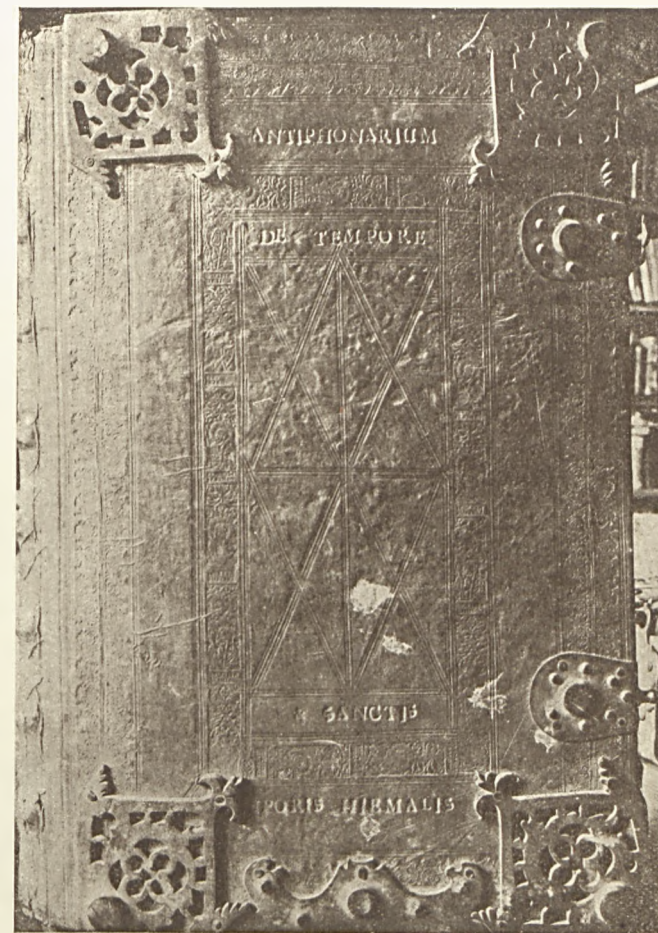 ANTIPHONARIUM
DE TEMPORE
SANCTIS
PORIS HIEMALIS